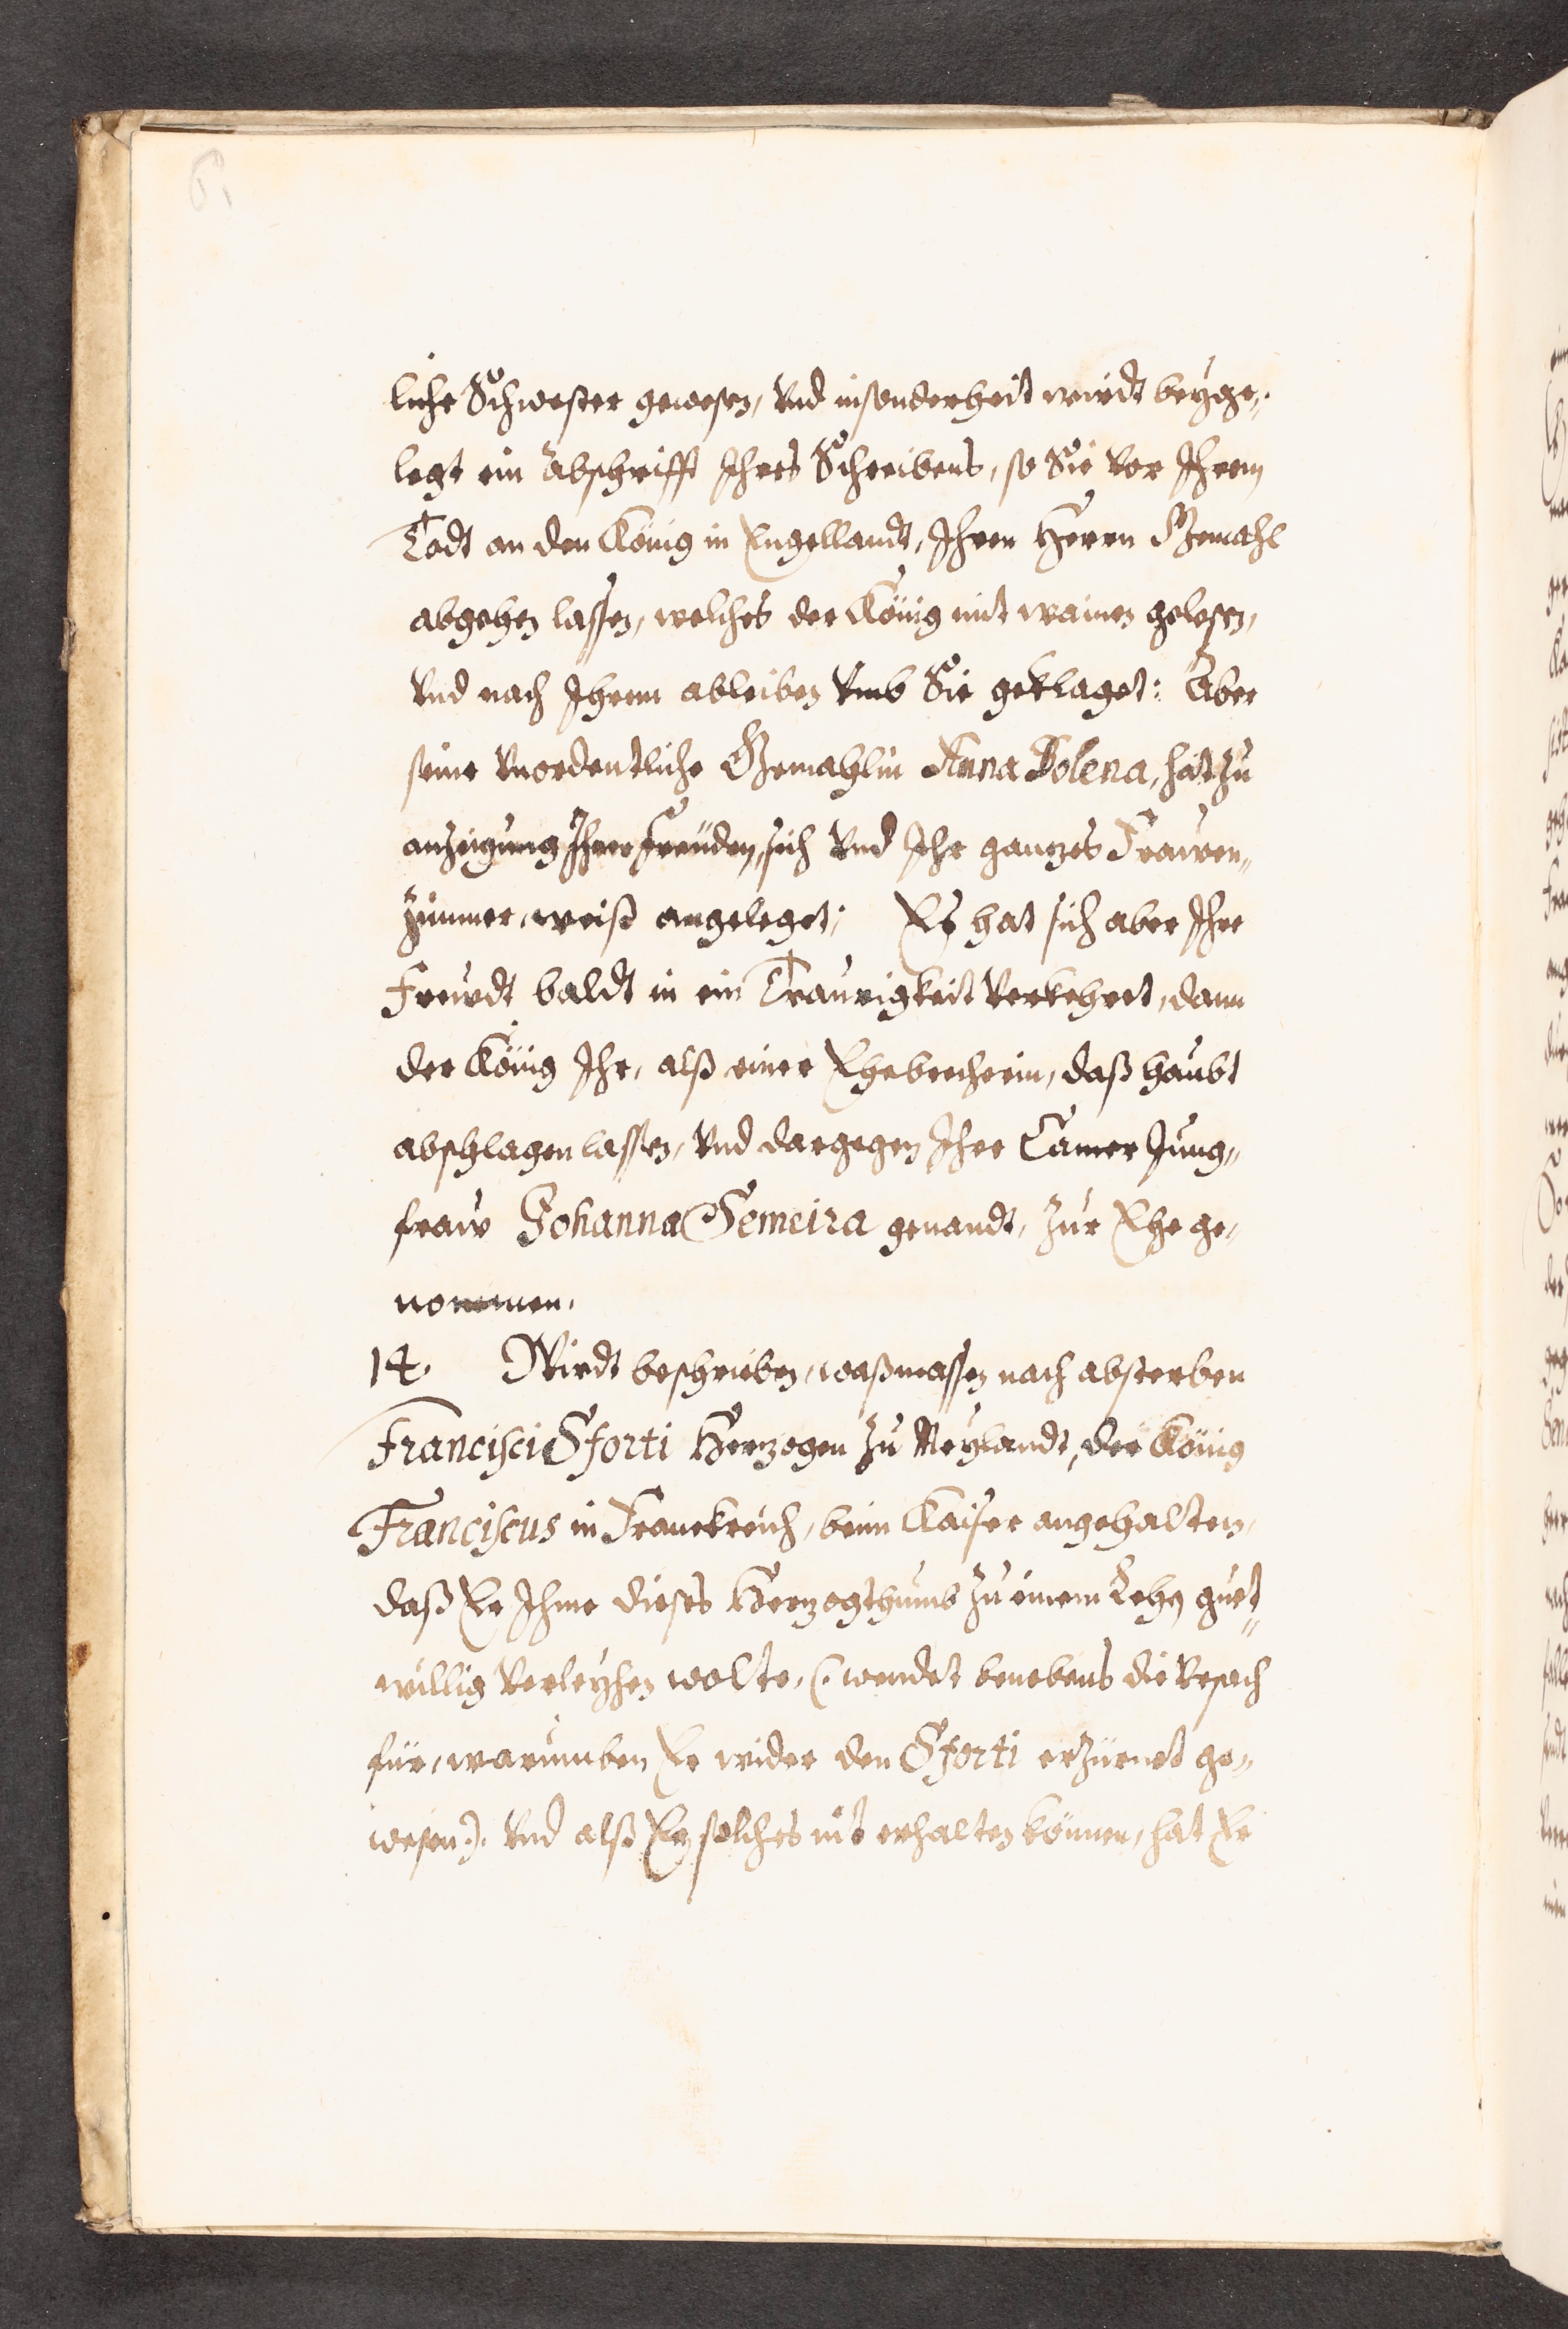 liche Schwester gewesen, Vnd insonderheit wirdt beyge„
legt ein Abschrifft Ihres Schreibens, so Sie Vor Ihrem
Todt an den König in Engellandt, Ihren Herrn Gemahl
abgehen lassen, welches der König mit wainen gelesen,
Vnd nach Ihrem ableiben Vmb Sie geklaget: Aber
seine Vnordentliche Gemahlin Anna Bolena, hat zu
anzeigung Ihrer freuden, sich Vnd Ihr ganzes Frawen„
zimmer, weiß angeleget; Es hat sich aber Ihr
Freudt baldt in ein Traurigkeit Verkehret, dann
der König Ihr, alß einer Ehebrecherin, daß haubt
abschlagen lassen, Vnd dargegen Ihre Camer Jung„
fraw Johanna Semeira genandt, zur Ehe ge„
nommen.
14. Wirdt beschrieben, waßmassen nach absterben
Francisci Sforti Herzogen zu Meylandt, der König
Franciscus in Franckreich, beim Kaiser angehalten,
daß Er Ihme dieses Herzogthumb zu einem Lehen guet„
willig Verleyhen wolte, (: wendet benebens die Vrsach
für, warumben Er wider den Sforti erzürnet ge„
wesen :). Vnd alß Er solches nit erhalten können, hat Er